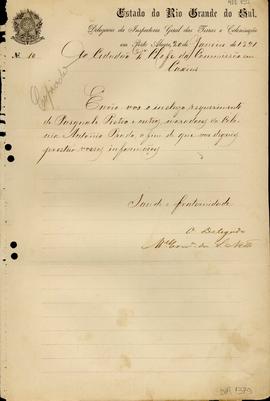 Estado do Rio Grande do Sul.
Delegacia da Inspectoria Geral das Terras e Colonisação
em Porto Alegre, 20 de Janeiro de 1891
Nº 10
Ao Cidadão Chefe da Commissão em
Caxias
Envio vos o incluso requerimento
de Pasquale Pietro e outros, moradores da Colo-
nia Antonio Prado, a fim de que vos digneis
prestar vossas informações
Saude e fraternidade
O Delegado